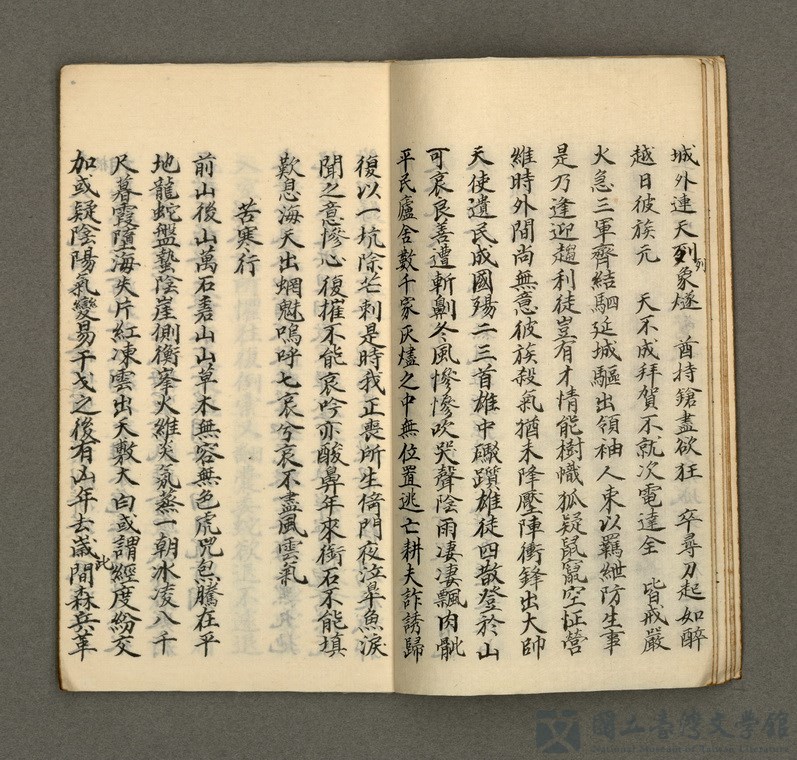 城外連天列象燧　酋持鎗盡欲狂　卒尋刀起如醉
列
越日彼族元　天不成拜賀不就次電達全　皆戒嚴
火急三軍齊結駟延城驅出領袖人束以羈紲防生事
是乃逢迎趨利徒豈有才情能樹幟狐疑鼠竄空怔營
維時外間尚無意彼族殺氣猶未降壓陣衝鋒出大帥
天使遺民成國殤二三首雄中礮躓雄徒四散登於山
可哀良善遭斬劓冬風慘慘吹哭聲陰雨凄凄飄肉骴
平民廬舍數千家灰燼之中無位置逃亡耕夫詐誘歸
復以一坑除芒刺是時我正喪所生倚門夜泣皐魚淚
聞之意慘心復摧不能哀吟亦酸鼻年來銜石不能填
歎息海天出蜩魅嗚呼七哀兮哀不盡風雲氣
苦寒行
前山後山萬石嘉山山草木無容無色虎咒怱騰在平
地龍蛇盤蟄陰崖側衡峯火維炎氛蒸一朝氷凌八千
尺暮霞墮海失片紅凍雲出天敷大白或謂經度紛交
加或疑陰陽氣變易干戈之後有凶年去歲間森兵革
此
國立臺灣文學館
National Museum of Taiwan Literature